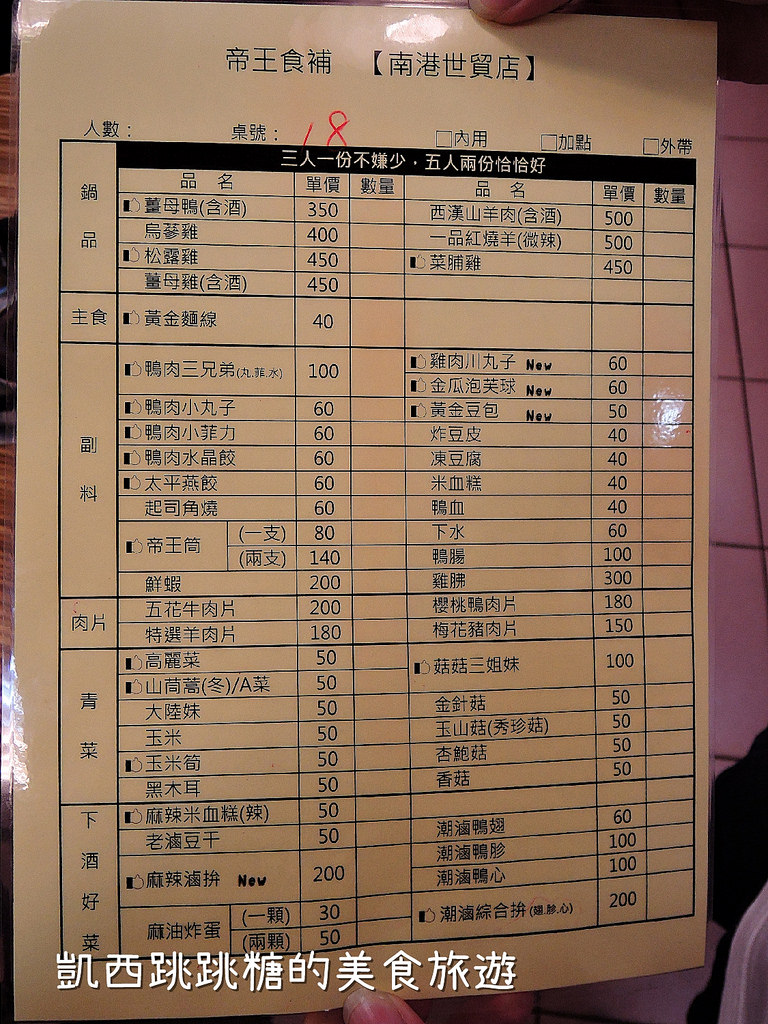 帝王食補 【南港世貿店】
人數： 桌號： 18 □內用 □加點 □外帶
三人一份不嫌少，五人兩份恰恰好
鍋品
品 名 單價 數量 品 名 單價 數量
薑母鴨(含酒) 350 西漢山羊肉(含酒) 500
烏蔘雞 400 一品紅燒羊(微辣) 500
松露雞 450 菜脯雞 450
薑母雞(含酒) 450
主食 黃金麵線 40
副料
鴨肉三兄弟(丸.菲.水) 100 雞肉川丸子 New 60
金瓜泡芙球 New 60
鴨肉小丸子 60 黃金豆包 New 50
鴨肉小菲力 60 炸豆皮 40
鴨肉水晶餃 60 凍豆腐 40
太平燕餃 60 米血糕 40
起司角燒 60 鴨血 40
帝王筒 (一支) 80 下水 60
(兩支) 140 鴨腸 100
鮮蝦 200 雞胇 300
肉片
五花牛肉片 200 櫻桃鴨肉片 180
特選羊肉片 180 梅花豬肉片 150
青菜
高麗菜 50 菇菇三姐妹 100
山茼蒿(冬)/A菜 50
大陸妹 50 金針菇 50
玉米 50 玉山菇(秀珍菇) 50
玉米筍 50 杏鮑菇 50
黑木耳 50 香菇 50
下酒好菜
麻辣米血糕(辣) 50
老滷豆干 50 潮滷鴨翅 60
麻辣滷拚 New 200 潮滷鴨胗 100
潮滷鴨心 100
麻油炸蛋 (一顆) 30 潮滷綜合拚(翅.胗.心) 200
(兩顆) 50
凱西跳跳糖的美食旅遊